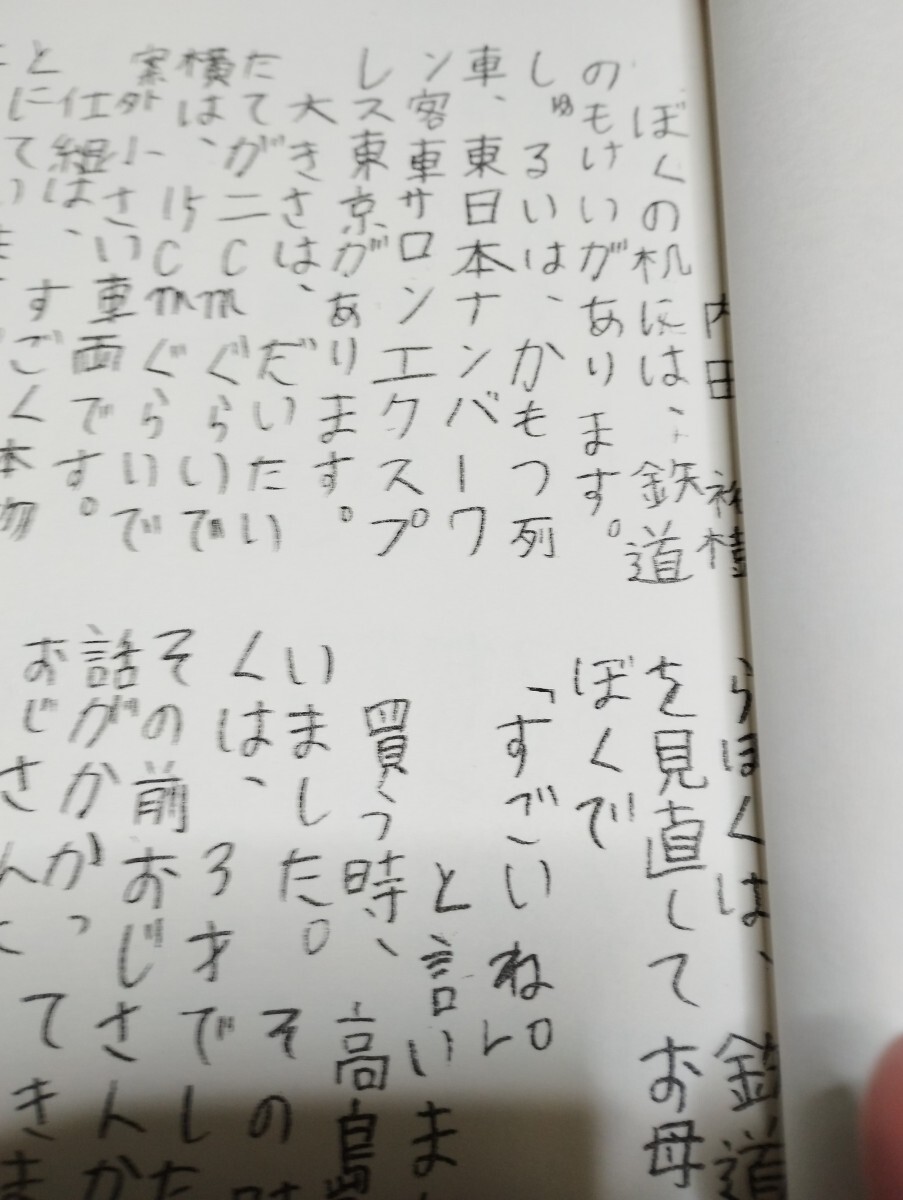 内田 祐樹
ぼくの机には、鉄道
のもけいがあります。
しゅるいは、かもつ列
車、東日本ナンバーワ
ン客車サロンエクスプ
レス東京があります。
大きさは、だいたい
たてが二cmぐらいで
横は、15cmぐらいで
案外小さい車両です。
仕組は、すごく本物
とにてい
らぼくは、鉄道
を見直してお母
ぼくで
「すごいね。」
と言いま
買う時、高島
いました。その時
くは、3才でした
その前おじさんか
話がかかってきま
おじさん